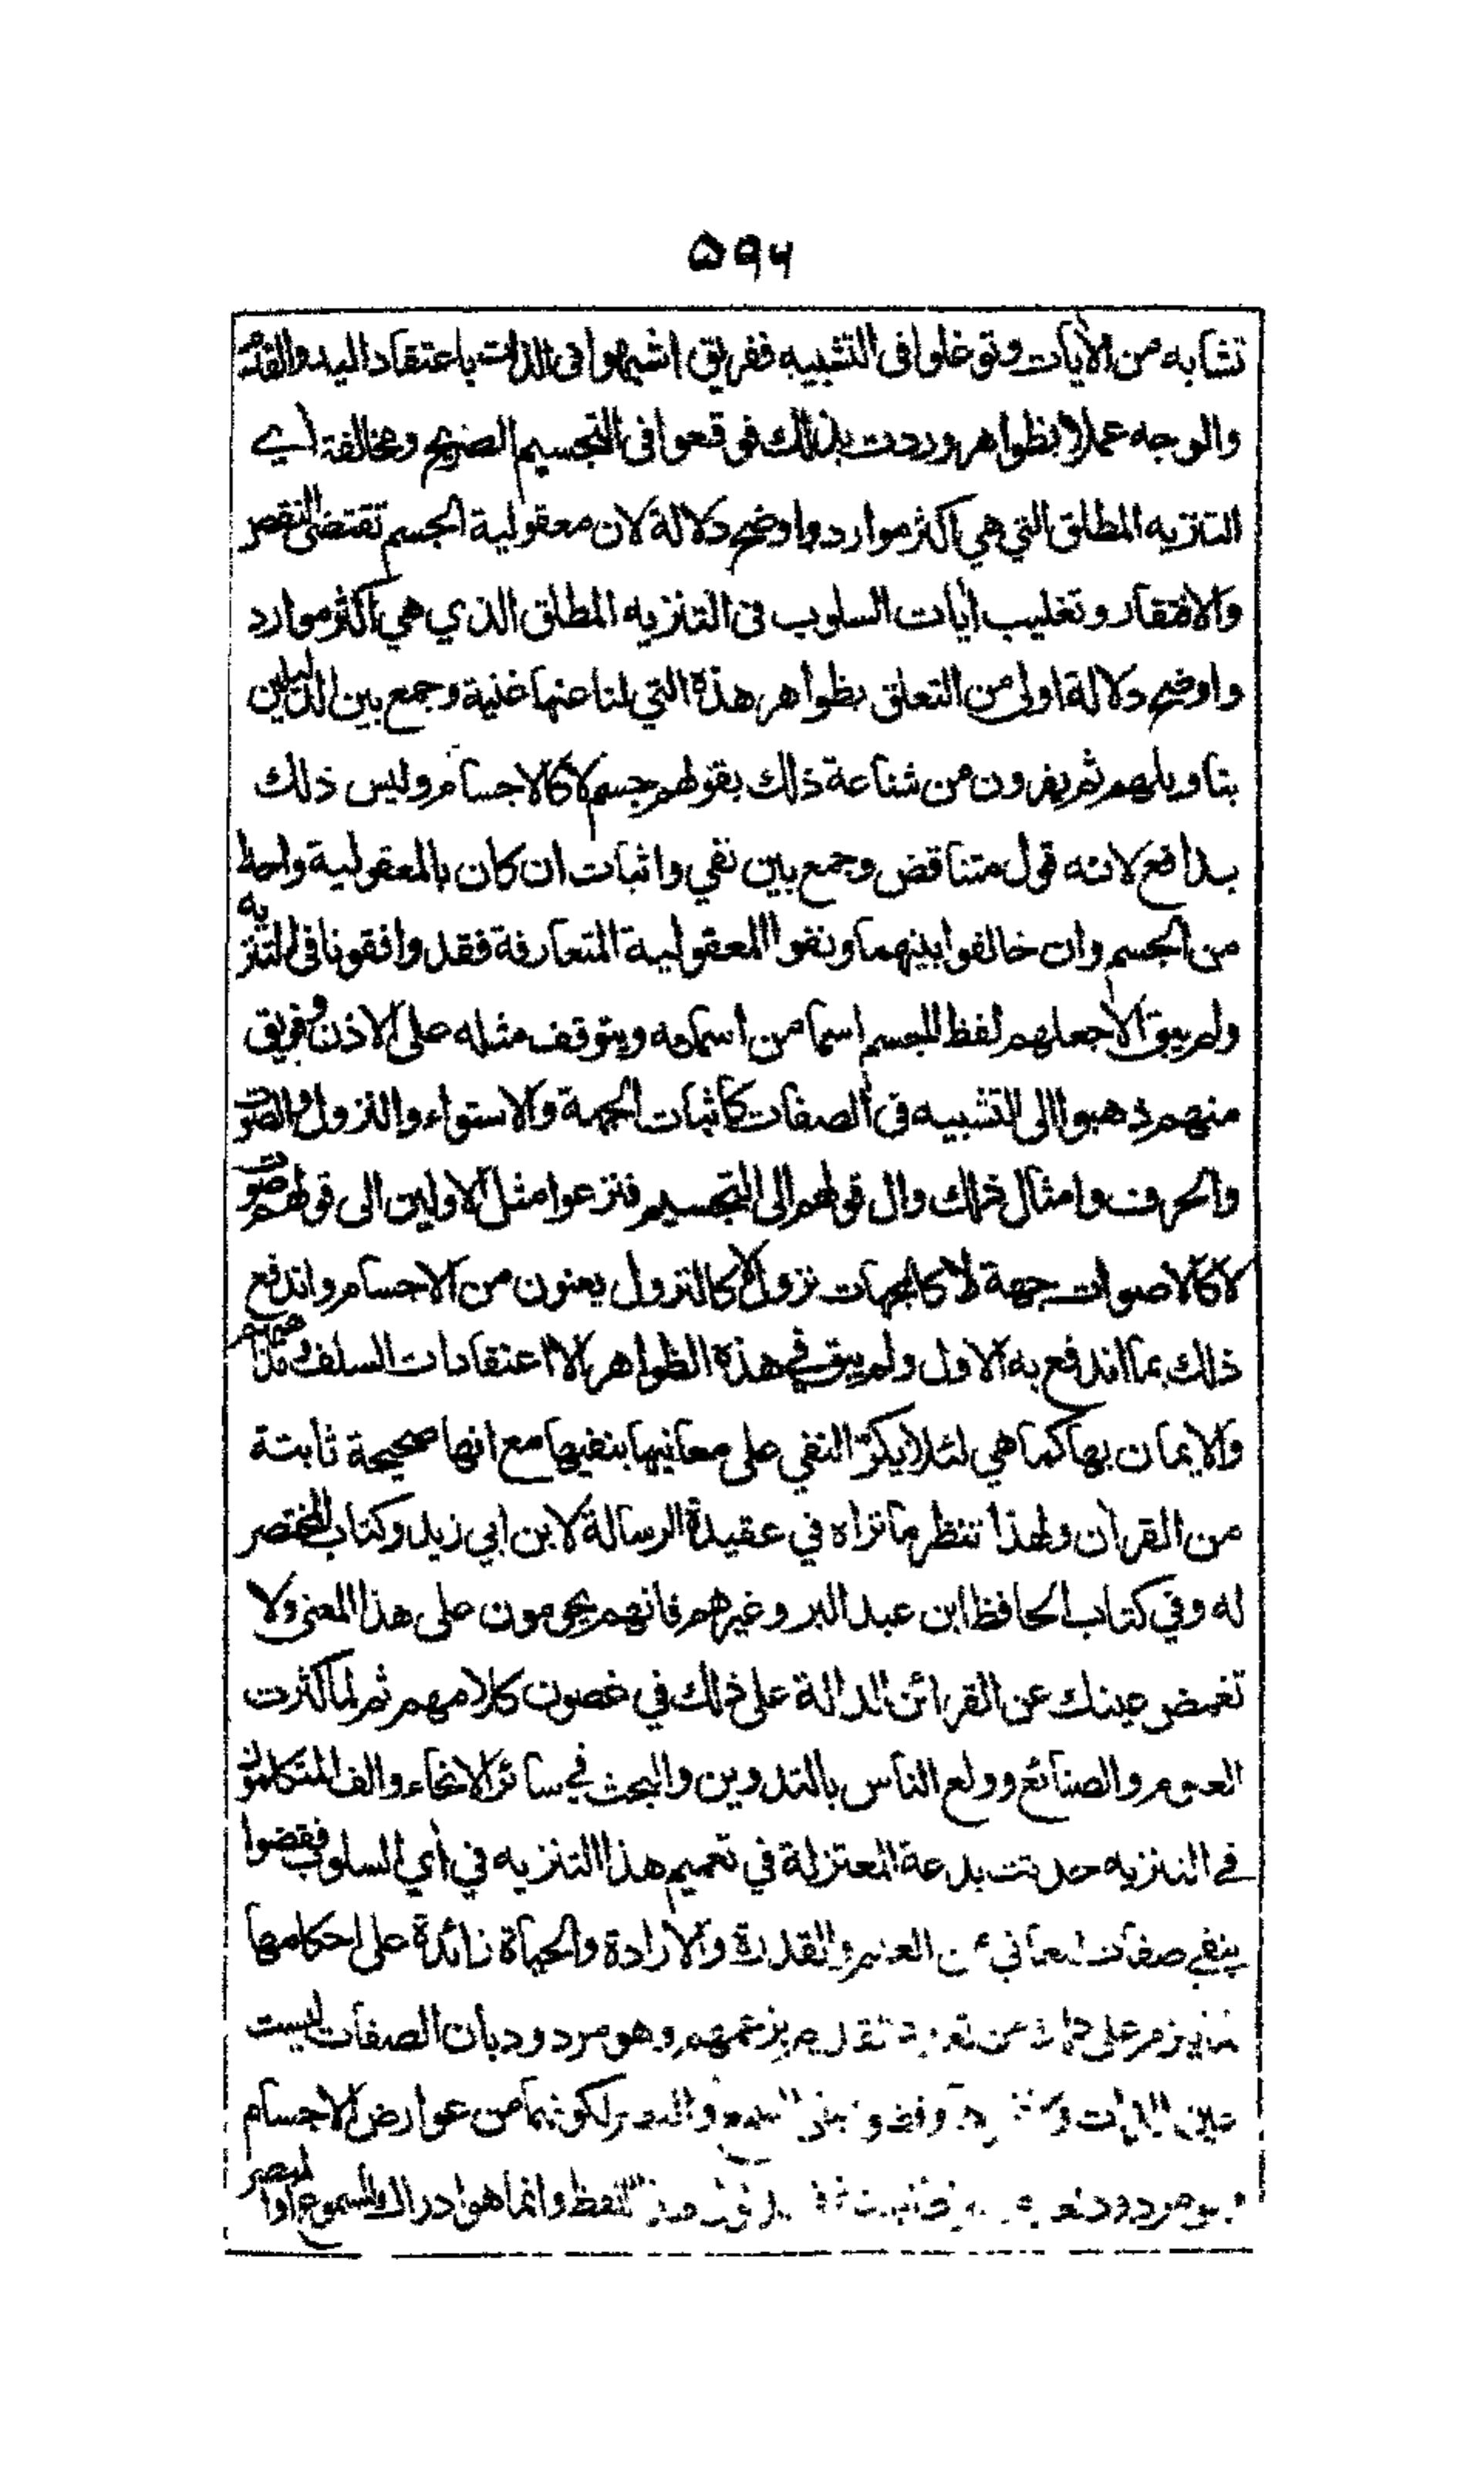 ۵۹۶
تشابه من الآيات وتوغلوا فى التشبيه ففريق اشبهوا فى الذات باعتقاد اليد والقدم
والوجه عملا بظواهر وردت بذلك فوقعوا فى التجسيم الصريح ومخالفة اي
التنزيه المطلق التي هي اكثر موارد واوضح دلالة لان معقولية الجسم تقتضى النقص
والافتقار وتغليب آيات السلوب فى التنزيه المطلق الذي هي اكثر موارد
واوضح دلالة اولى من التعلق بظواهر هذة التي لنا عنها غنية وجمع بين الدليلين
بتاويلهم ثم يفرون من شناعة ذلك بقولهم جسم لا كالاجسام وليس ذلك
بدافع لانه قول متناقض وجمع بين نفي واثبات ان كان بالمعقولية واحدة
من الجسم وان خالفوا بينهما ونفوا المعقولية المتعارفة فقد وافقونا فى التنزيه
ولم يبق الا جعلهم لفظ الجسم اسما من اسمائه ويتوقف مثله على الاذن وفريق
منهم ذهبوا الى التشبيه فى الصفات كاثبات الجهة والاستواء والنزول والصوت
والحرف وامثال ذلك وال قولهم الى التجسيم فنزعوا مثل الاولين الى قولهم صوت
لا كالاصوات جهة لا كالجهات نزول لا كالنزول يعنون من الاجسام واندفع
ذلك بما اندفع به الاول ولم يبق في هذة الظواهر الا اعتقادات السلف ومذاهبهم
والايمان بها كما هي لئلا يكرّ النفي على معانيها بنفيها مع انها صحيحة ثابتة
من القرآن ولهذا تنظر ما تراه في عقيدة الرسالة لابن ابي زيد وكتاب المختصر
له وفي كتاب الحافظ ابن عبد البر وغيرهم فانهم يحومون على هذا المعنى ولا
تغمض عينك عن القرائن الدالة على ذلك في غصون كلامهم ثم لما كثرت
العلوم والصنائع وولع الناس بالتدوين والبحث في سائر الانحاء والف المتكلمون
في التنزيه حدثت بدعة المعتزلة في تعميم هذا التنزيه في آي السلوب فقضوا
بنفي صفات المعاني من العلم والقدرة والارادة والحياة زائدة على احكامها
لما يلزم على ذلك من تعدد القديم بزعمهم وهو مردود بان الصفات ليست
عين الذات ولا وقضوا بنفي السمع والبصر لكونهما من عوارض الاجسام
وهو مردود لعدم اللفظ وانما هو ادراك المسموع او المبصر